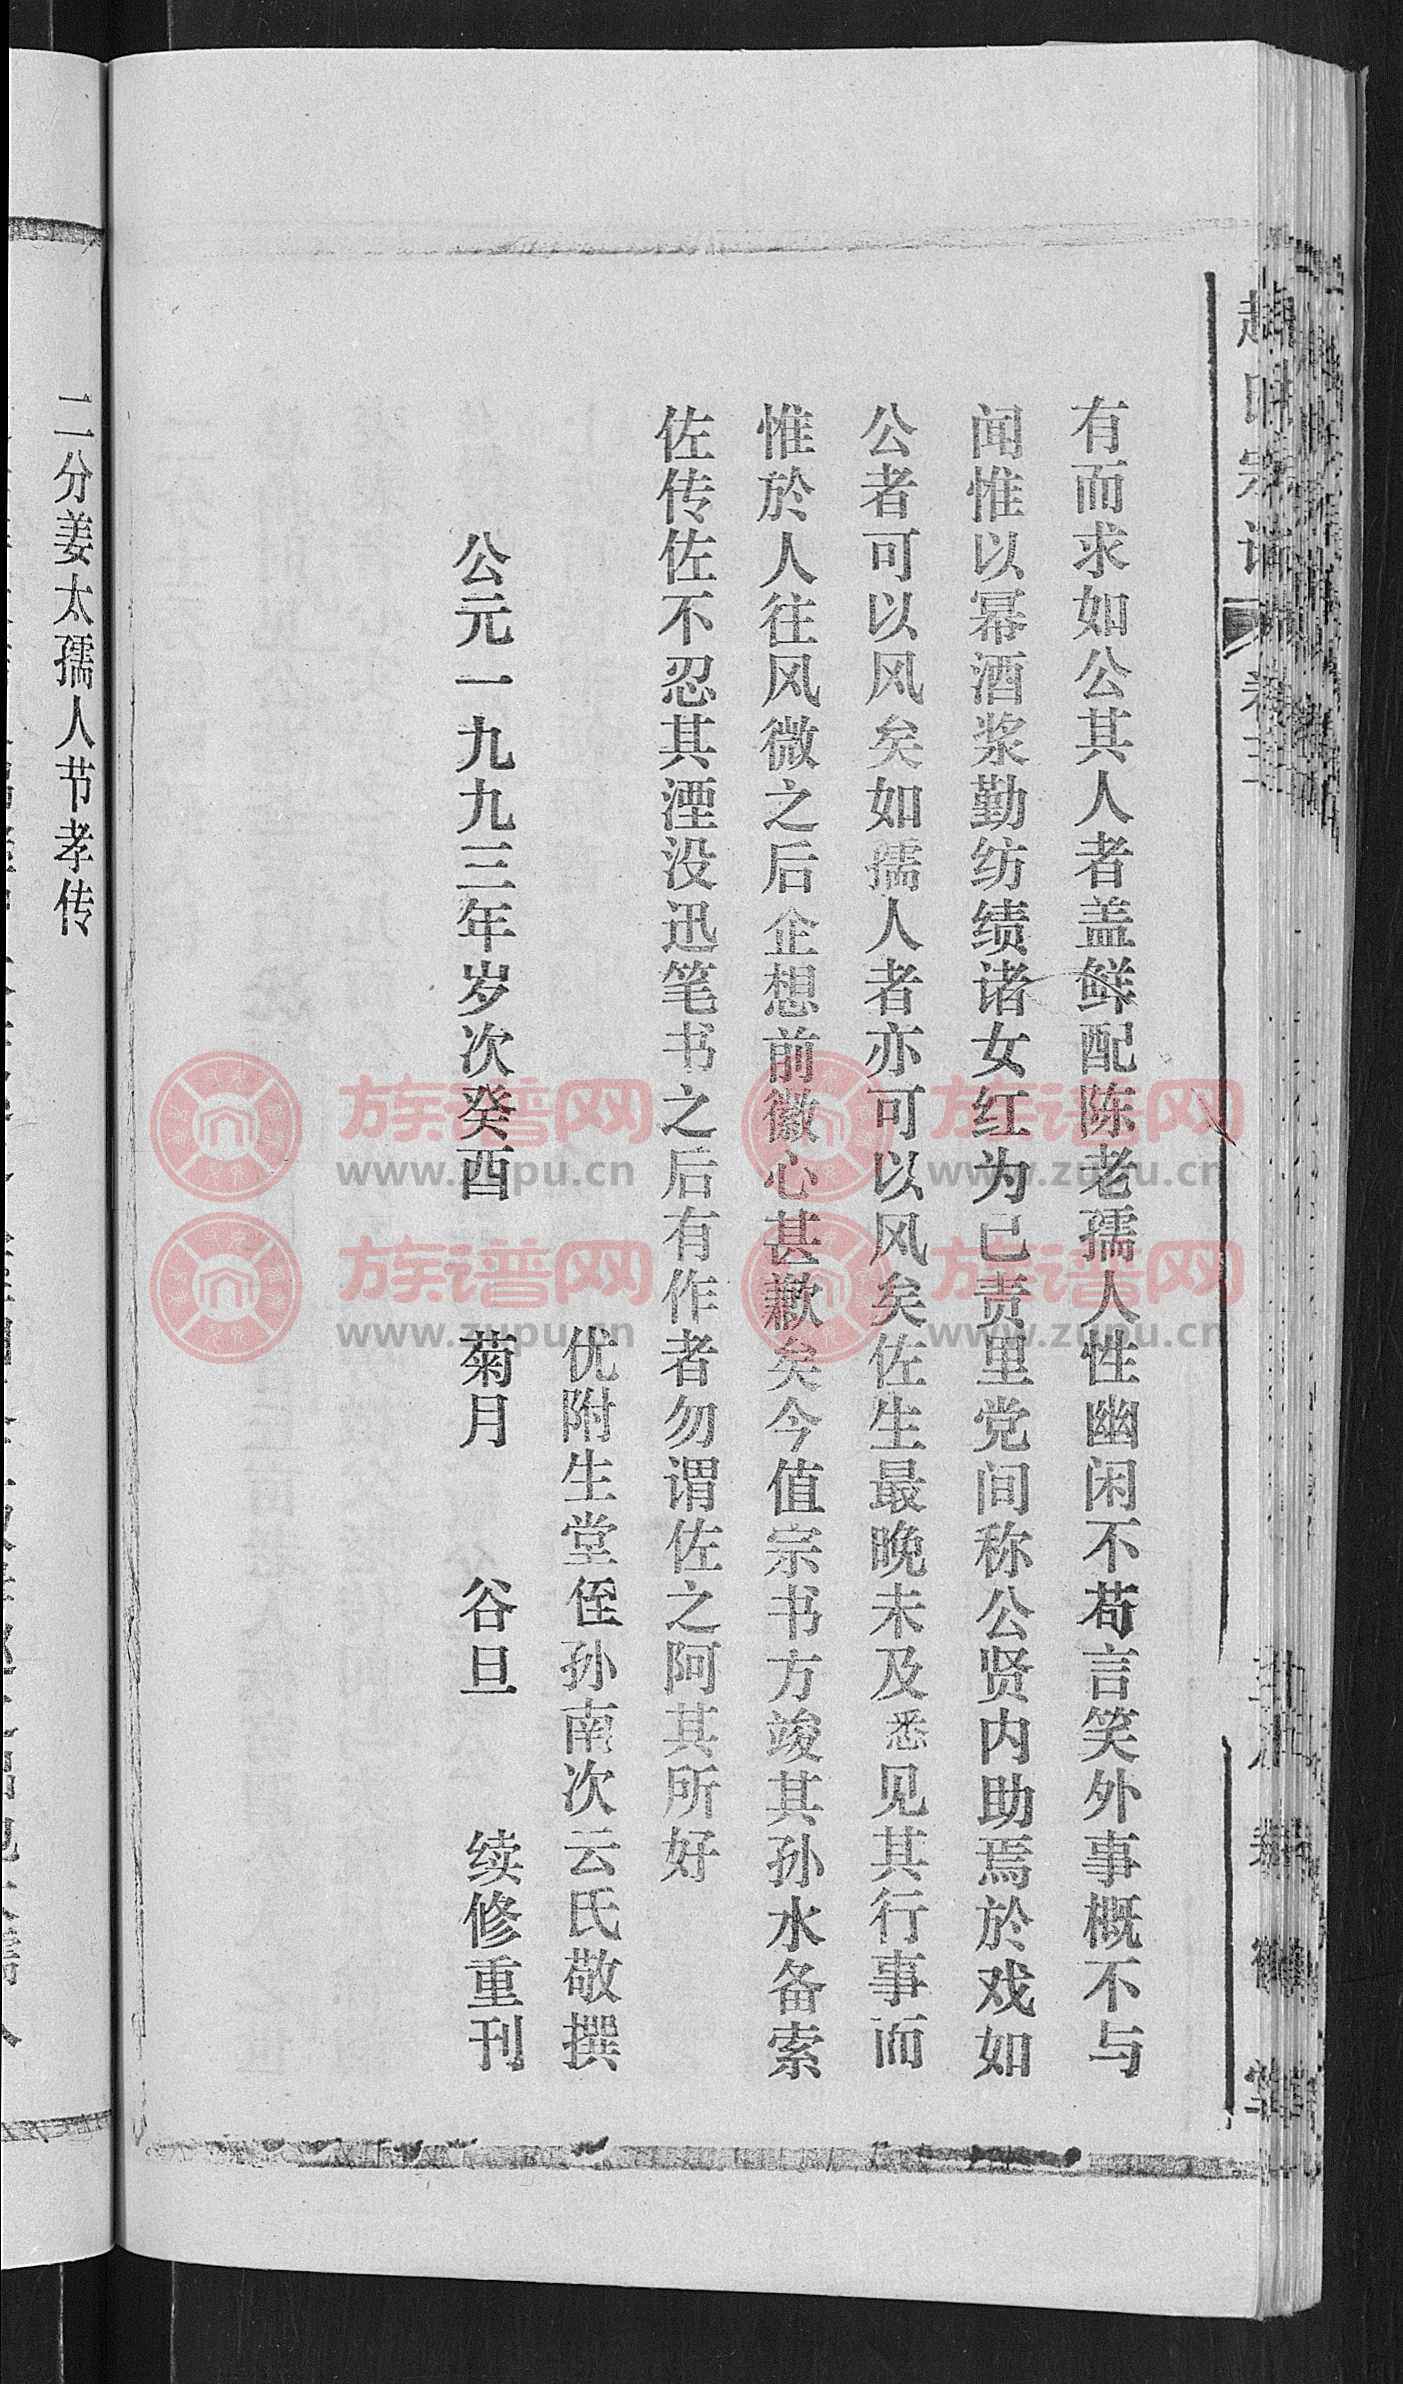 有而求如公其人者盖鲜配陈老孺人性幽闲不苟言笑外事概不与
闻惟以幂酒浆勤纺绩诸女红为已责里党间称公贤内助焉於戏如
公者可以风矣如孺人者亦可以风矣佐生最晚未及悉见其行事而
惟於人往风微之后企想前徽心甚歉矣今值宗书方竣其孙水备索
佐传佐不忍其湮没迅笔书之后有作者勿谓佐之阿其所好
优附生堂侄孙南次云氏敬撰
公元一九九三年岁次癸酉 菊月 谷旦 续修重刊
二分姜太孺人节孝传
族谱网
www.zupu.cn
族谱网
www.zupu.cn
族谱网
www.zupu.cn
族谱网
www.zupu.cn